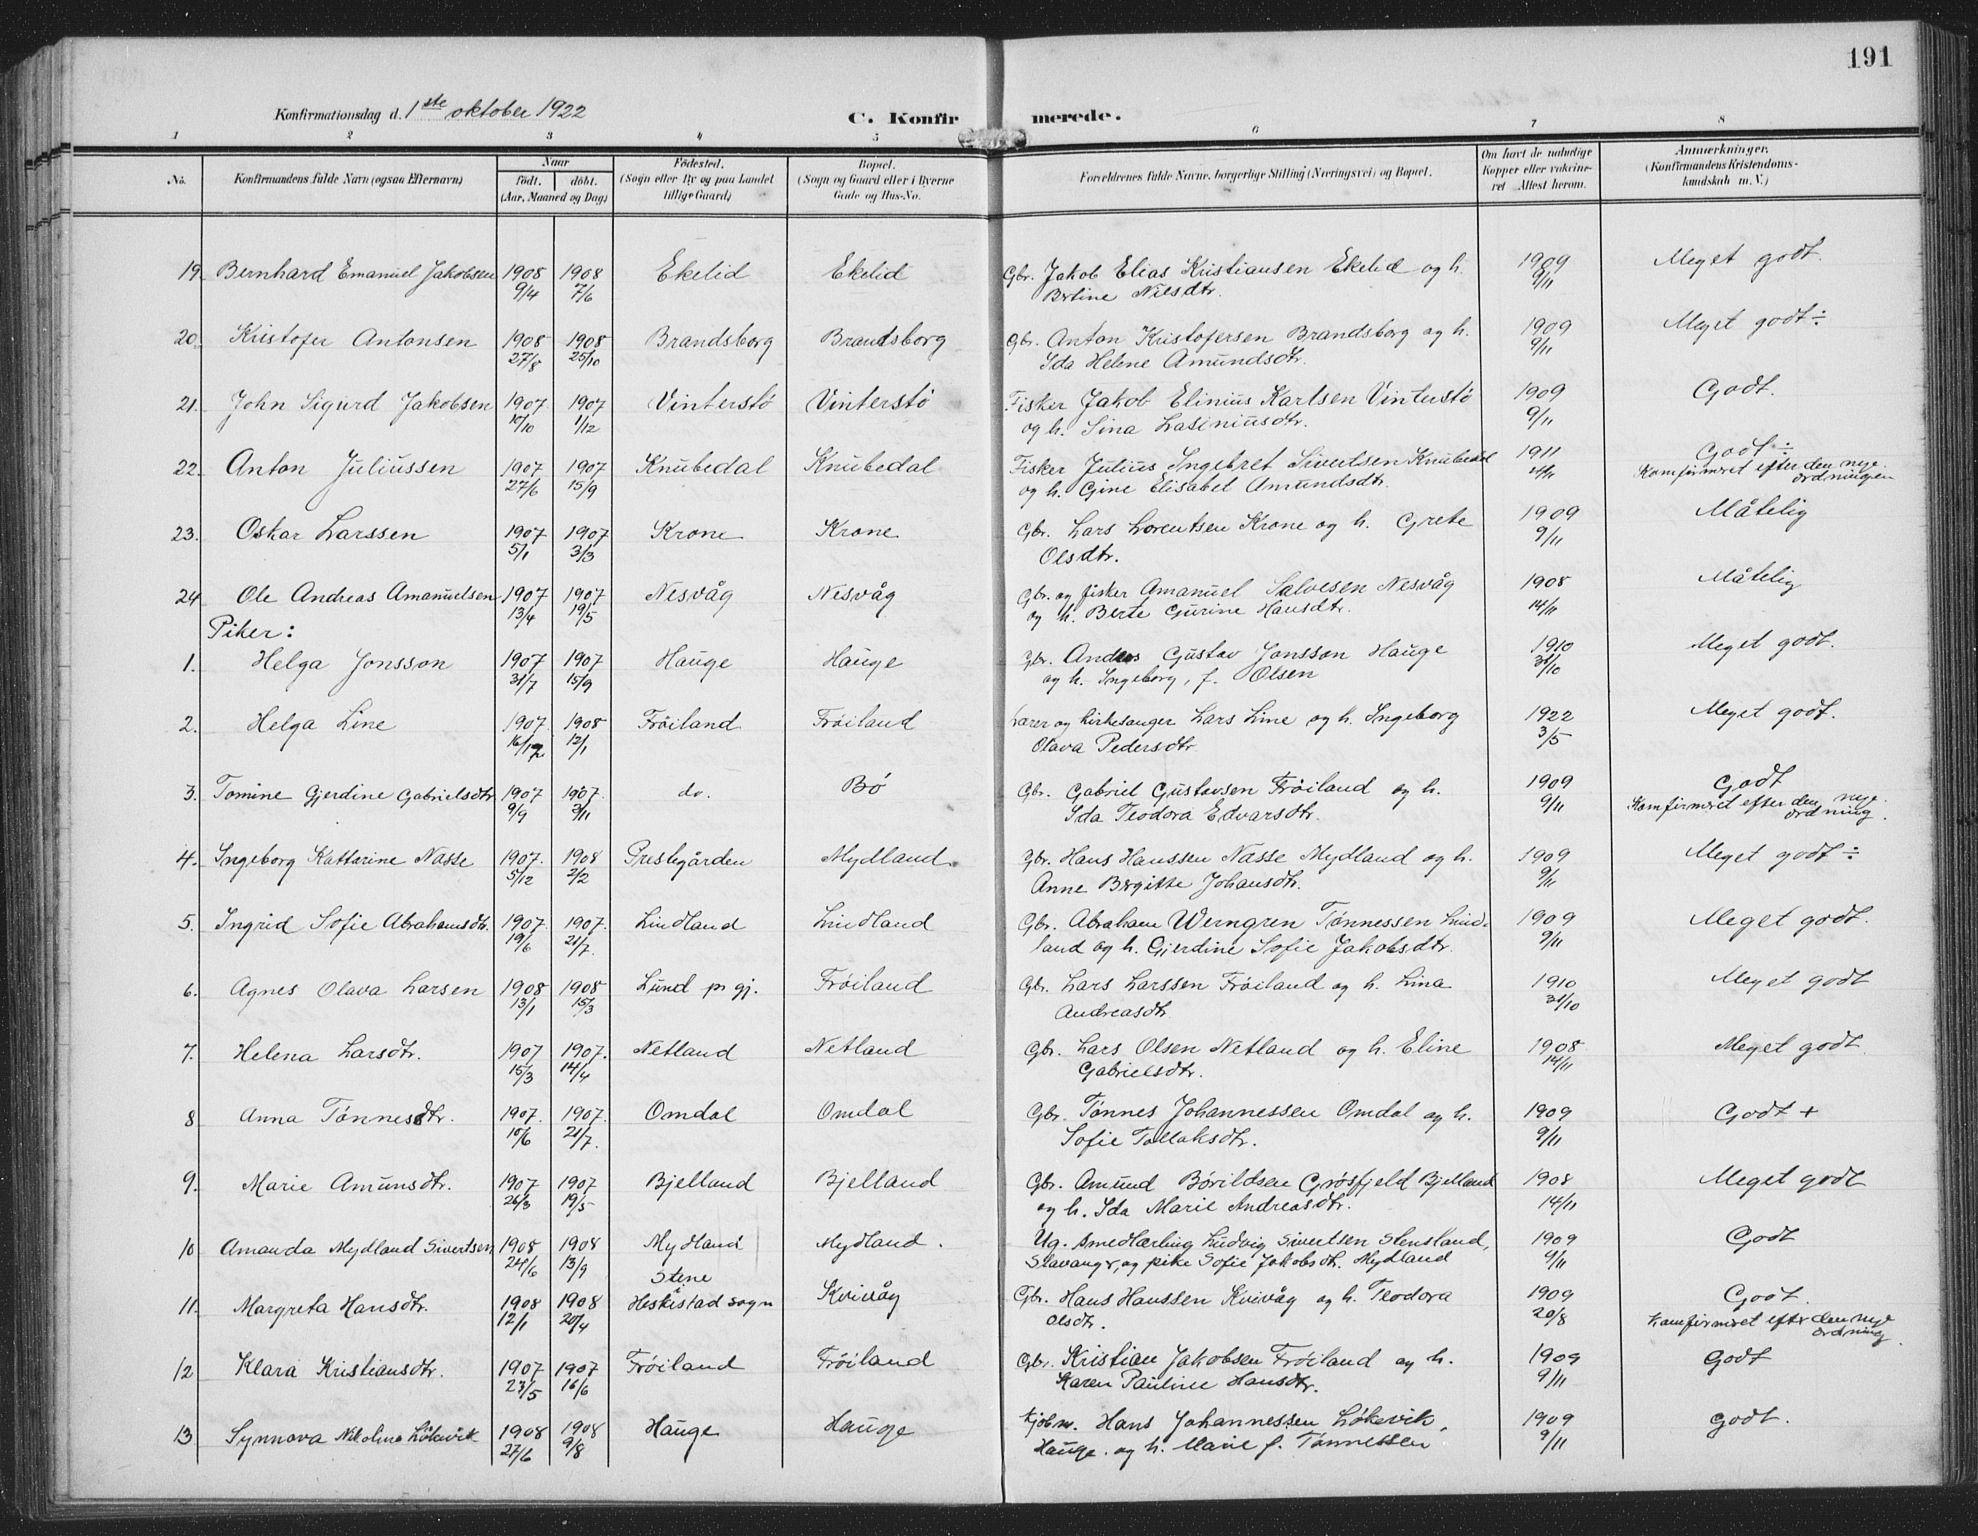 191
Konfirmationsdag d. 1ste oktober 1922 C. Konfirmerede.
1 2 3 4 5 6 7 8
No. Konfirmandens fulde Navn (ogsaa Efternavn) Naar Födested. Bopæl. Forældrenes fulde Navne, borgerlige Stilling (Næringsvei) og Bopæl. Om havt de naturlige Anmærkninger.
født. døbt. (Sogn eller By og paa Landet (Sogn og Gaard eller i Byerne Kopper eller vakcine- (Konfirmandens Kristendoms-
(Aar, Maaned og Dag) tillige Gaard) Gade og Hus-No. ret Attest herom. kundskab m. V.)
19. Bernhard Emanuel Jakobsen 1908 1908 Ekelid Ekelid Gbr. Jakob Elias Kristiansen Ekelid og h. 1909 Meget godt.
9/4 7/6 Bertine Nilsdtr. 9/11
20. Kristofer Antonsen 1908 1908 Brandsborg Brandsborg Gbr. Anton Kristofersen Brandsborg og h. 1909 Meget godt ÷
27/8 25/10 Ida Helene Amundsdtr. 9/11
21. John Sigurd Jakobsen 1907 1907 Vinterstö Vinterstö Fisker Jakob Elinius Karlsen Vinterstö 1909 Godt.
10/10 1/12 og h. Sina Lasiniusdtr. 9/11
22. Anton Juliussen 1907 1907 Knubedal Knubedal Fisker Julius Ingebret Sivertsen Knubedal 1911 Godt ÷
27/6 15/9 og h. Gine Elisabet Amundsdtr. Komfirmeret efter den nye
ordningen
23. Oskar Larssen 1907 1907 Krone Krone Gbr. Lars Lorentsen Krone og h. Grete 1909 Måtelig
5/1 3/3 Olsdtr. 9/11
24 Ole Andreas Amanuelsen 1907 1907 Nesvåg Nesvåg Gbr. og fisker Amanuel Salvesen Nesvåg 1908 Måtelig
13/4 19/5 og h. Berte Gurine Hansdtr. 14/11
Piker:
1. Helga Jonsson 1907 1907 Hauge Hauge Gbr. Anders Gustav Jonsson Hauge 1910 Meget godt.
31/7 15/9 og h. Ingeborg, f. Olsen 31/10
2. Helga Line 1907 1908 Fröiland Fröiland Lærer og kirkesanger Lars Line og h. Ingeborg 1922 Meget godt.
16/12 12/1 Olava Pedersdtr 3/5
3. Tomine Gjerdine Gabrielsdtr 1907 1907 do. Bö Gbr. Gabriel Gustavsen Fröiland og h. 1909 Godt
9/9 2/11 Ida Teodora Edvarsdtr. 9/11 Komfirmeret efter den nye
ordning.
4. Ingeborg Kattarine Nasse 1907. 1908 Prestegården Mydland Gbr. Hans Hanssen Nasse Mydland og h. 1909 Meget godt ÷
5/12 2/2 Anne Birgitte Johansdtr. 9/11
5. Ingrid Sofie Abrahamsdtr. 1907. 1907. Lindland Lindland Gbr. Abraham Werngren Tønnessen Lind- 1909 Meget godt.
19/6 21/7. land og h. Gjerdine Sofie Jakobsdtr. 9/11
6. Agnes Olava Larsen 1908 1908 Lund pr gj. Fröiland Gbr. Lars Larssen Fröiland og h. Lina 1910 Meget godt
13/1 15/3 Andreasdtr. 31/10
7. Helena Larsdtr. 1907 1907. Netland Netland Gbr. Lars Olsen Netland og h. Eline 1908 Meget godt
15/3 14/4 Gabrielsdtr. 14/11
8 Anna Tönnesdtr. 1907. 1907. Omdal Omdal Gbr. Tönnes Johannessen Omdal og h. 1909 Godt +
10/6 21/7. Sofie Tollaksdtr. 9/11
9. Marie Amunsdtr. 1907 1907 Bjelland Bjelland Gbr. Amund Børildsen Grøsfjeld Bjelland 1908 Meget godt
26/3 19/5 og h. Ida Marie Andreasdtr. 14/11
10 Amanda Mydland Sivertsen 1908 1908 Mydland Mydland. Ug. smedlærling Ludvig Sivertsen Stensland, 1909 Godt
24/6 13/9 Stavanger, og pike Sofie Jakobsdtr. Mydland 9/11
Stene
11. Margreta Hansdtr. 1908 1908 Heskestad sogn Kvivåg Gbr. Hans Hanssen Kvivåg og h. Teodora 1909 Godt.
12/1 20/4 Olsdtr. 20/8 Komfirmeret efter den nye
ordning.
12 Klara Kristiansdtr. 1907 1907 Fröiland Fröiland Gbr. Kristian Jakobsen Fröiland og h. 1909 Godt
23/5 16/6 Karen Pauline Hansdtr. 9/11
13 Synnova Nikolina Lökevik 1908 1908 Hauge Hauge Kjöbm. Hans Johannessen Lökevik, 1909 Godt.
27/6 9/8 Hauge. og h. Marie f. Tönnessen 9/11